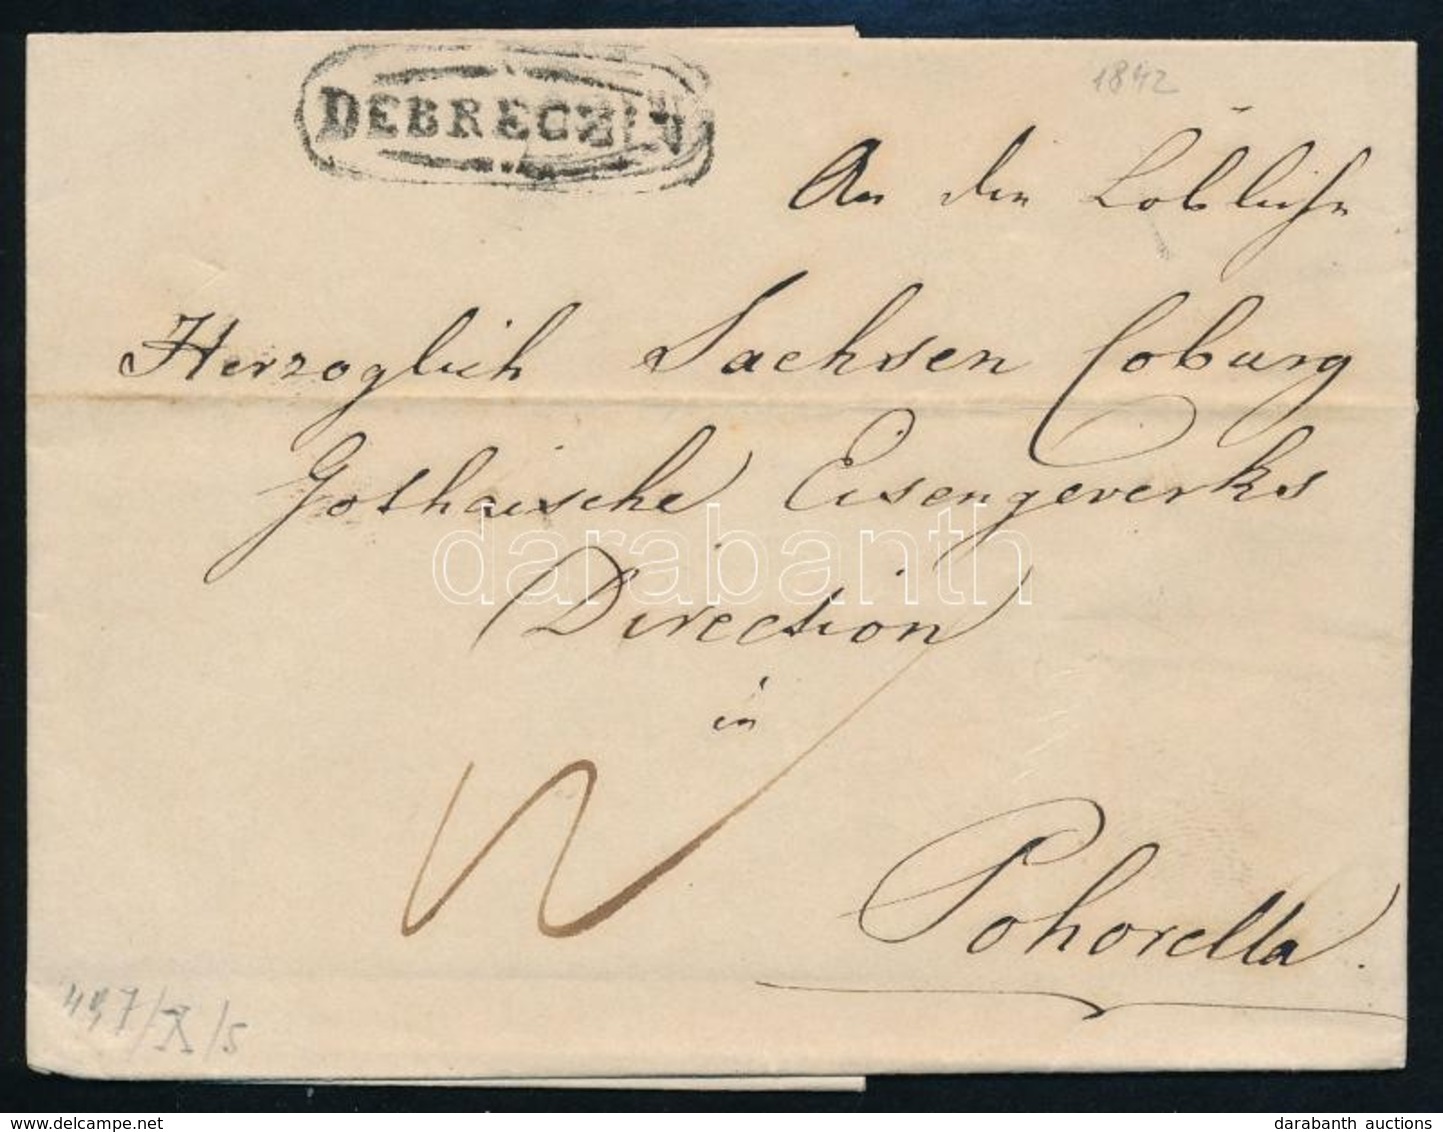 1842
DEBRECZIN
An die Löbliche
Herzoglich Sachsen Coburg
Gothaische Eisengewerks
Direction
in
Pohorella.
darabanth
delcampe.net
darabanth auctions